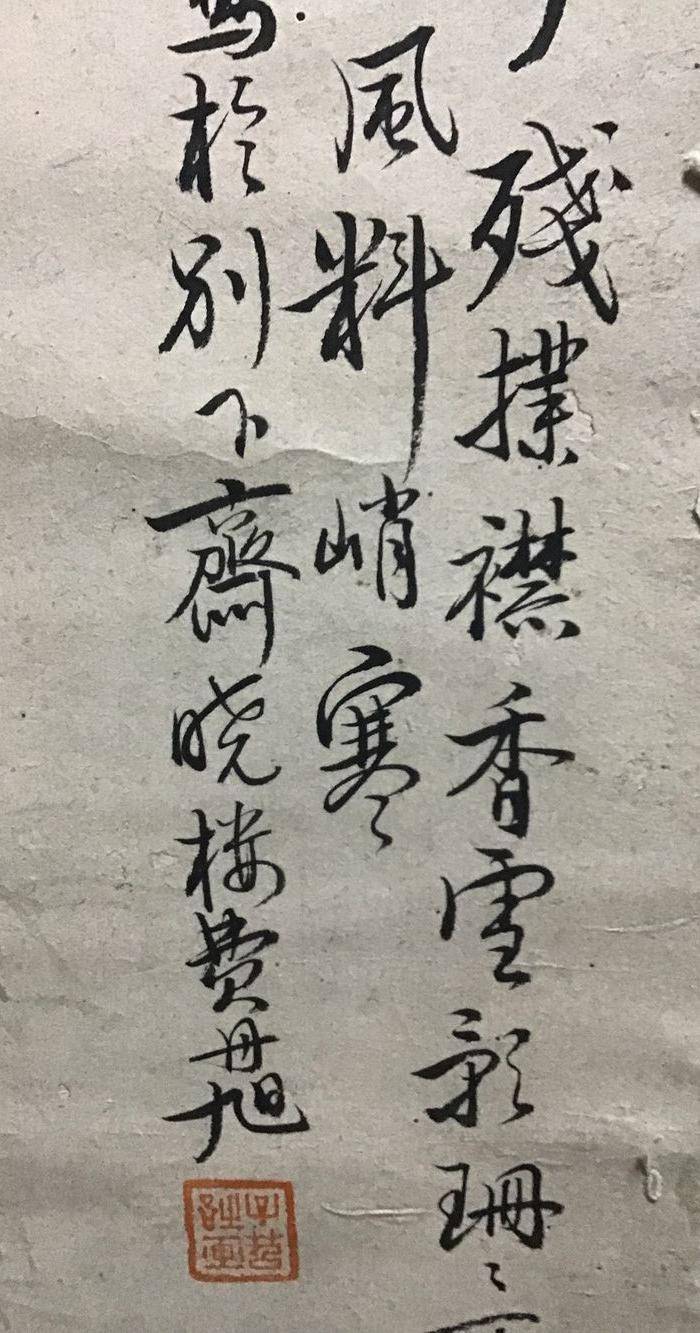 殘撲襟香雪影珊〻
風料峭寒〻
寫於別下齋曉樓費丹旭